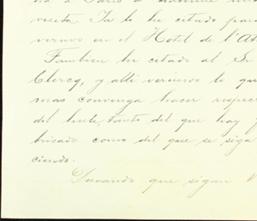 visita. Ya le he citado para
vernos en el Hotel de l'At
Tambien he citado al Sr
Clercq, y alli veremos lo que
mas convenga hacer respec
del hule, tanto del que hay
bricado como del que se siga
ciendo.
Deseando que sigan V